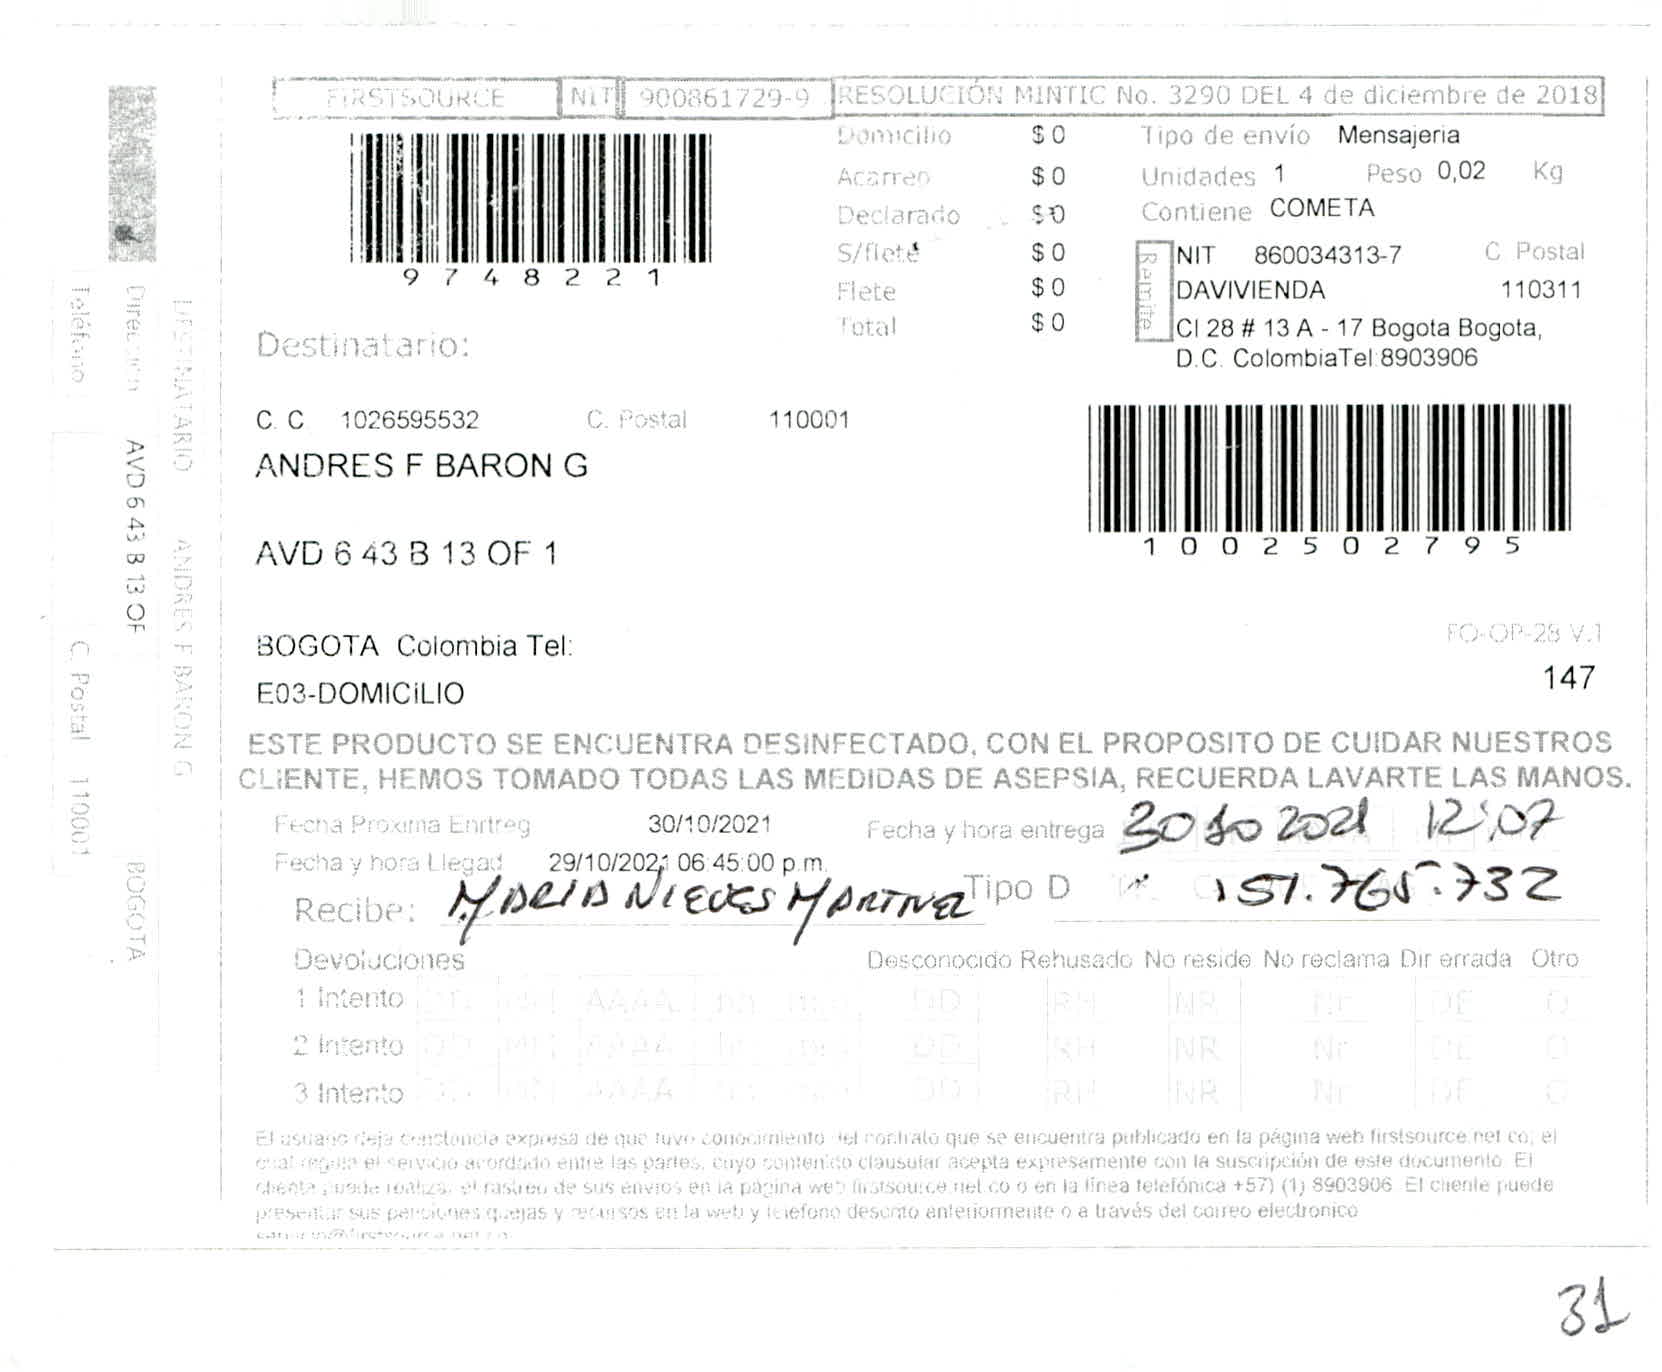 FIRSTSOURCE NIT 900861729-9 RESOLUCIÓN MINTIC No. 3290 DEL 4 de diciembre de 2018
9748221
Domicilio $ 0
Acarreo $ 0
Declarado $ 0
S/flete $ 0
Flete $ 0
Total $ 0
Tipo de envío Mensajeria
Unidades 1 Peso 0,02 Kg
Contiene COMETA
Remite
NIT 860034313-7 C Postal
DAVIVIENDA 110311
Cl 28 # 13 A - 17 Bogota Bogota,
D.C. ColombiaTel:8903906
Destinatario:
C. C 1026595532 C. Postal 110001
ANDRES F BARON G
AVD 6 43 B 13 OF 1
1002502795
BOGOTA Colombia Tel:
E03-DOMICILIO
FO-OP-28 V.1
147
ESTE PRODUCTO SE ENCUENTRA DESINFECTADO, CON EL PROPOSITO DE CUIDAR NUESTROS
CLIENTE, HEMOS TOMADO TODAS LAS MEDIDAS DE ASEPSIA, RECUERDA LAVARTE LAS MANOS.
Fecha Proxima Enrtreg 30/10/2021 Fecha y hora entrega 30 10 2021 12:07
Fecha y hora Llegad 29/10/2021 06:45:00 p.m.
Recibe: MARIA NIEVES MARTINEZ Tipo D 51.765.732
Devoluciones Desconocido Rehusado No reside No reclama Dir errada Otro
1 Intento DD MM AAAA hh mm DD RH NR Nr DE O
2 Intento DD MM AAAA hh mm DD RH NR Nr DE O
3 Intento DD MM AAAA hh mm DD RH NR Nr DE O
El usuario deja constancia expresa de que tuvo conocimiento del contrato que se encuentra publicado en la página web firstsource.net.co; el
cual regula el servicio acordado entre las partes, cuyo contenido clausular acepta expresamente con la suscripción de este documento. El
cliente puede realizar el rastreo de sus envios en la página web firstsource.net.co o en la línea telefónica +57) (1) 8903906. El cliente puede
presentar sus peticiones quejas y recursos en la web y telefono descrito anteriormente o a través del correo electronico
DESTINATARIO ANDRES F BARON G
Direccion AVD 6 43 B 13 OF BOGOTA
Teléfono C. Postal 110001
31